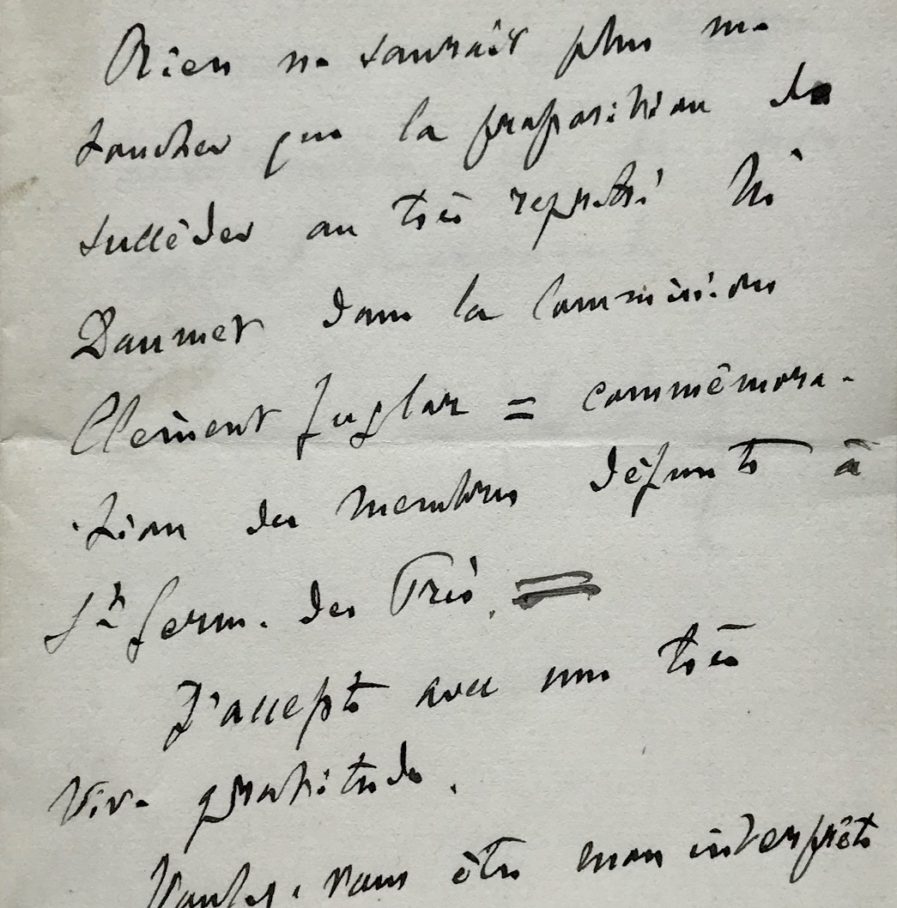 Rien ne saurait plus me
toucher que la proposition de
succéder au très regretté Mr
Daumet dans la Commission
Clément Juglar = commémora-
tion des membres défunts à
St Germ. des Prés.
J'accepte avec une très
vive gratitude.
Voulez-vous être mon interprète